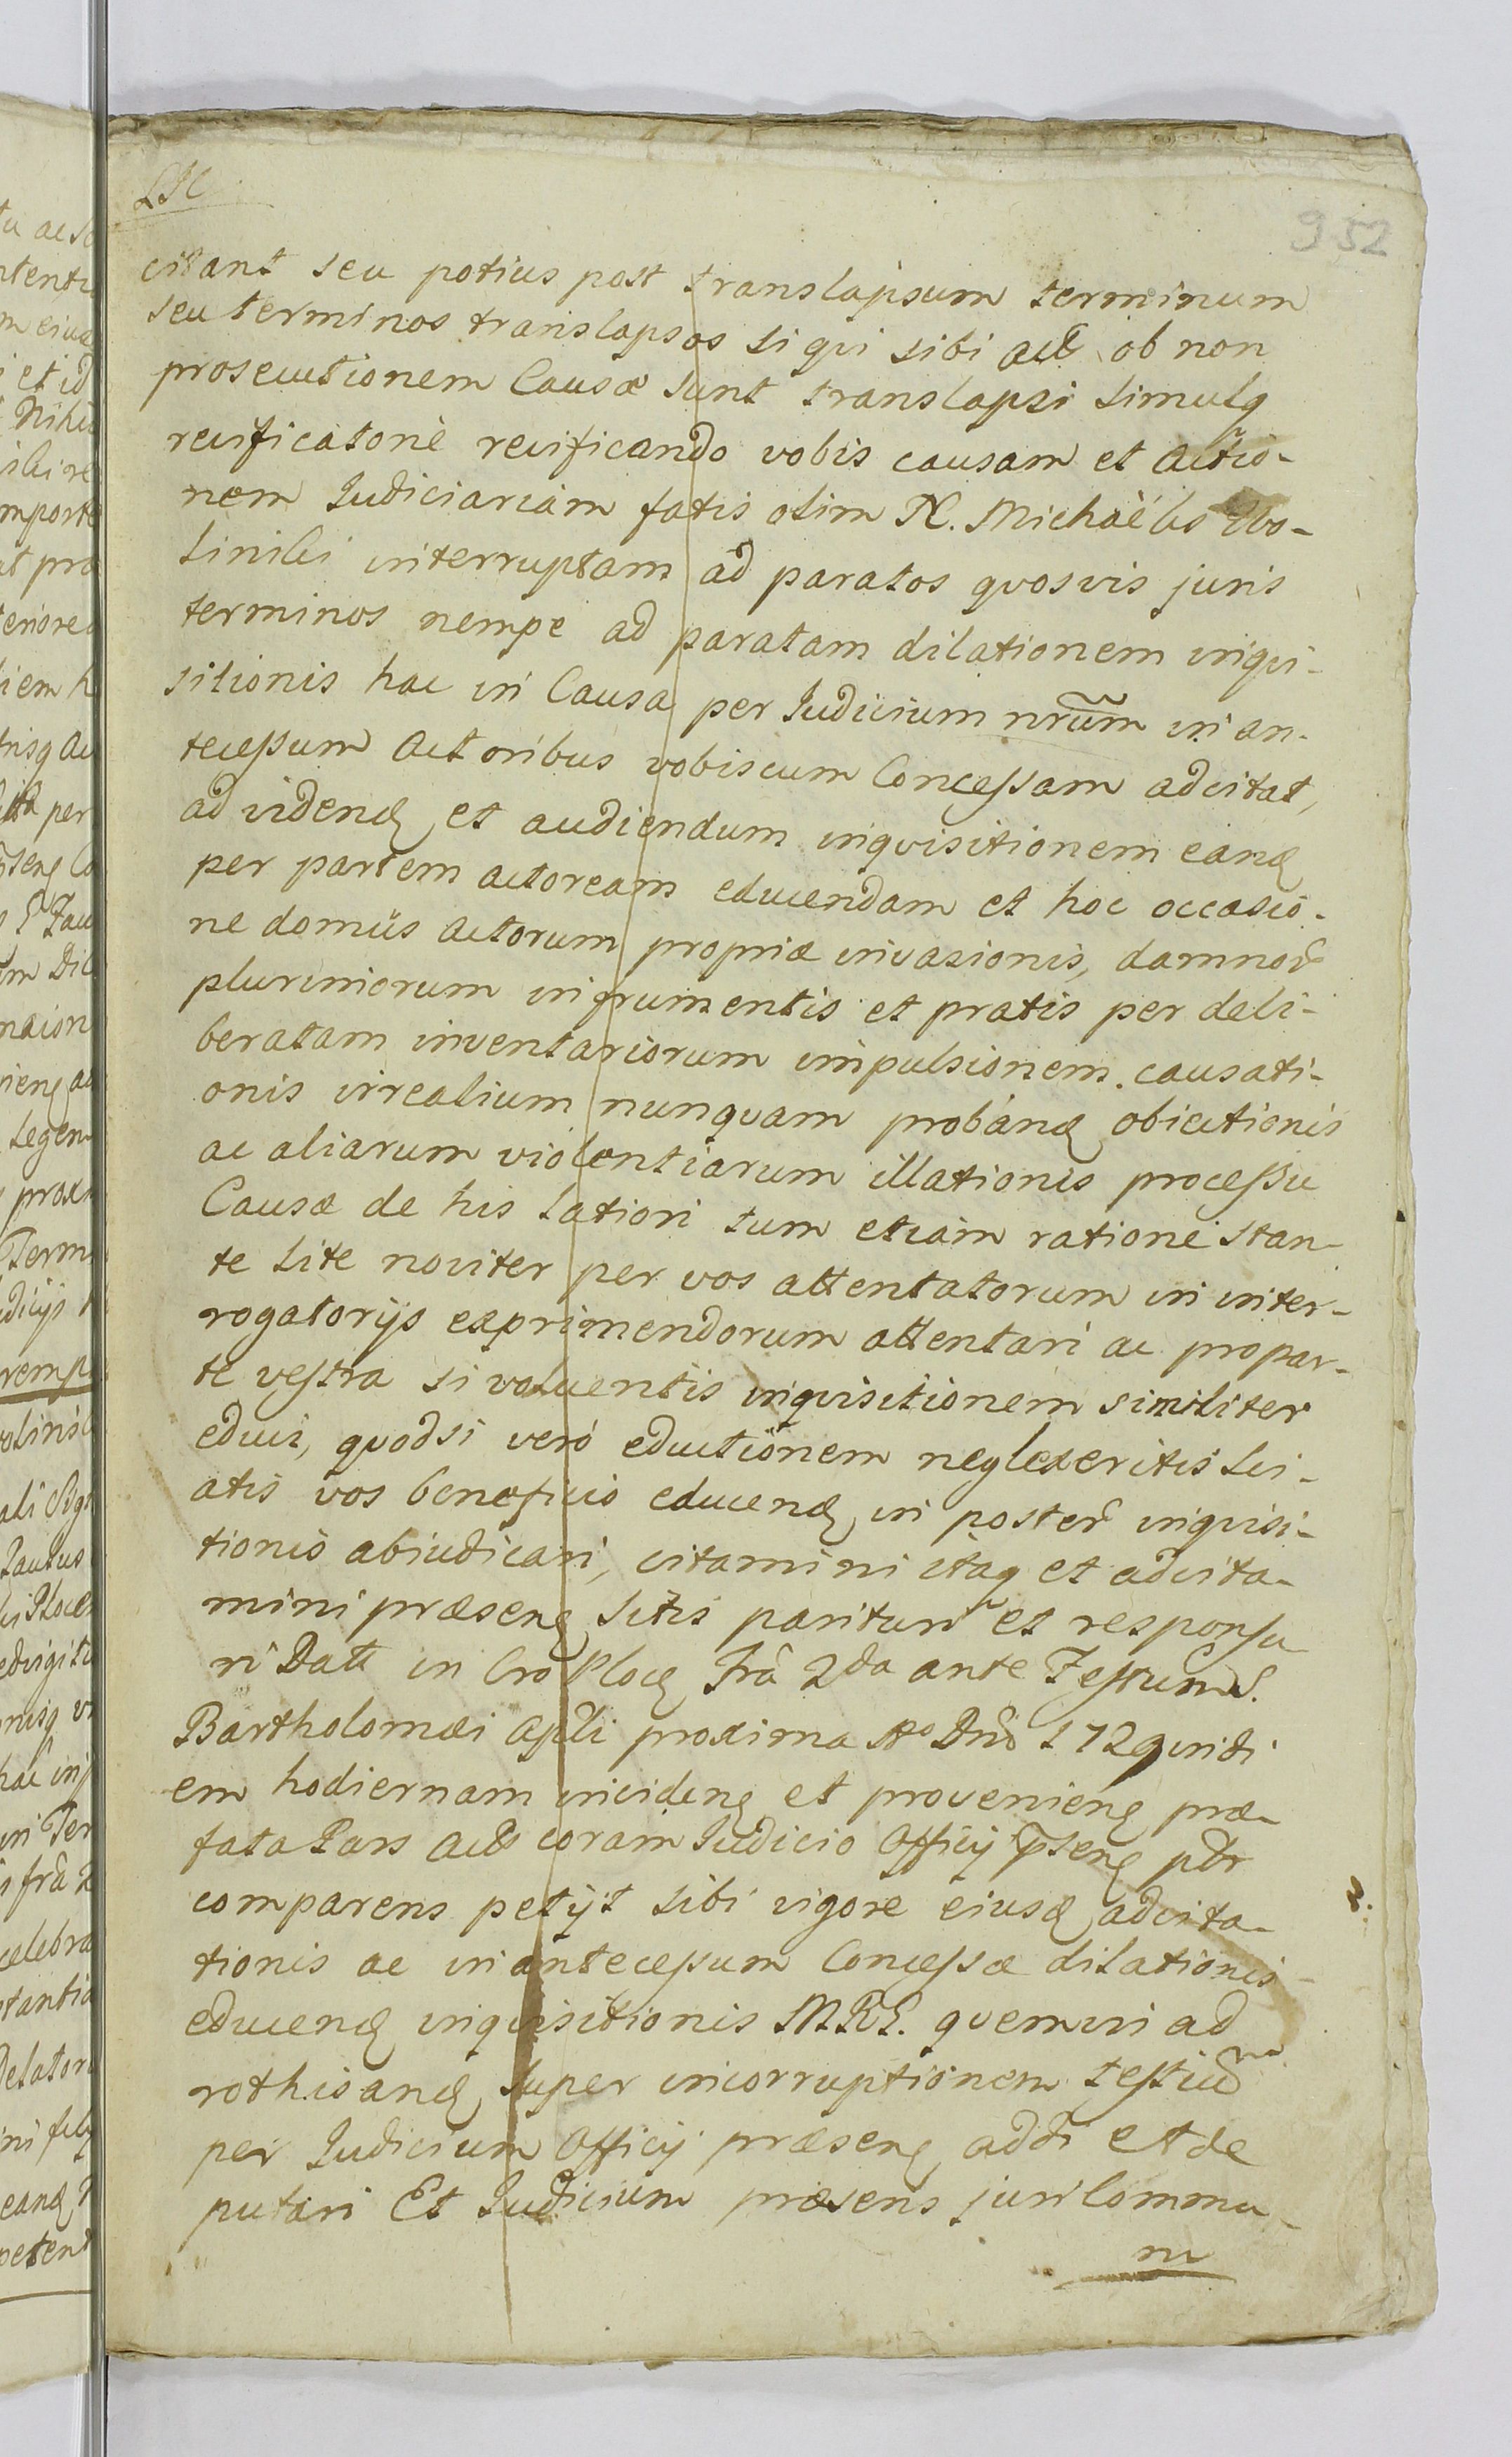 952
citant seu potius post translapsum terminum
seu terminos translapsos si qui sibi act ob non
prosecutionem Causæ sunt translapsi simulq
reificatorie reificando vobis causam et actio-
nem Judiciariam fatis olim N. Michaëlis Wo-
linski interruptam ad paratos quosvis juris
terminos nempe ad paratam dilationem inqui-
sitionis hac in Causa per Judicium nrum in an-
tecessum actoribus vobiscum Concessam adcitat,
ad videnđ et audiendum inquisitionem eanđ
per partem actoream educendam et hoc occasio-
ne domus actorum propriæ invasionis, damnor
plurimorum in frumentis et pratis per deli-
beratam inventariorum impulsionem causati-
onis irrealium nunquam probanđ obiectionis
ac aliarum violentiarum illationis processu
Causæ de his latiori tum etiam ratione stan-
te lite noviter per vos attentatorum in inter-
rogatorijs exprimendorum attentari ac propar-
te vestra si volueritis inquisitionem similiter
educi, quodsi vero eductionem neglexeritis sci-
atis vos beneficio educenđ in poster inquisi-
tionis abiudicari, citamini itaq et adcita-
mini præsenę sitis parituri et responsu
ri Datt in Cro Ploc fria 2da ante Festum S.
Bartholomæi Apli proxima Ao Dni 1729 in di
em hodiernam incidenę et provenienę præ-
fata Pars act coram Judicio Officij pntenę ptr
comparens petijt sibi vigore eiusđ adcita-
tionis ac in antecessum Concessæ dilationis
educenđ inquisitionis M.R.G. quemvi ad
rothisanđ super incorruptionem testium
per Judicium Officij præsenę addi et de
putari Et Judicium præsens juri Commu-
ni